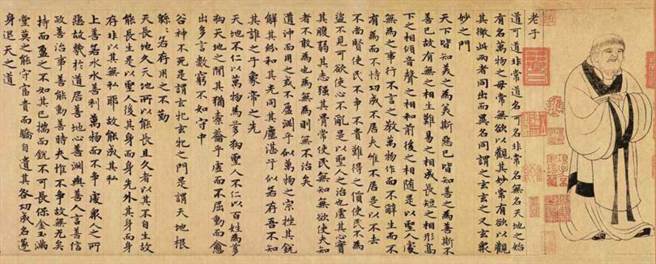 老子
道可道非常道名可名非常名無名天地之始
有名萬物之母常無欲以觀其妙常有欲以觀
其徼此兩者同出而異名同謂之玄玄之又玄衆
妙之門
天下皆知美之為美斯惡已皆知善之為善斯不
善已故有無之相生難易之相成長短之相形高
下之相傾音聲之相和前後之相隨是以聖人處
無為之事行不言之教萬物作而不辭生而不
有為而不恃功成不居夫惟不居是以不去
不尚賢使民不爭不貴難得之貨使民不為
盜不見可欲使心不亂是以聖人之治也虛其心實
其腹弱其志強其骨常使民無知無欲使夫知
者不敢為也為無為則無不治矣
道沖而用之或不盈淵乎似萬物之宗挫其銳
解其紛和其光同其塵湛兮似若存吾不知
其誰之子象帝之先
天地不仁以萬物為芻狗聖人不仁以百姓為芻
狗天地之間其猶橐籥乎虛而不屈動而愈
出多言數窮不如守中
谷神不死是謂玄牝玄牝之門是謂天地根
緜緜若存用之不勤
天長地久天地所以能長且久者以其不自生故
能長生是以聖人後其身而身先外其身而身
存非以其無私耶故能成其私
上善若水水善利萬物而不爭處衆人之所
惡故幾於道居善地心善淵與善人言善信
政善治事善能動善時夫惟不爭故無尤矣
持而盈之不知其已揣而銳不可長保金玉滿
堂莫之能守富貴而驕自遺其咎功成名遂
身退天之道